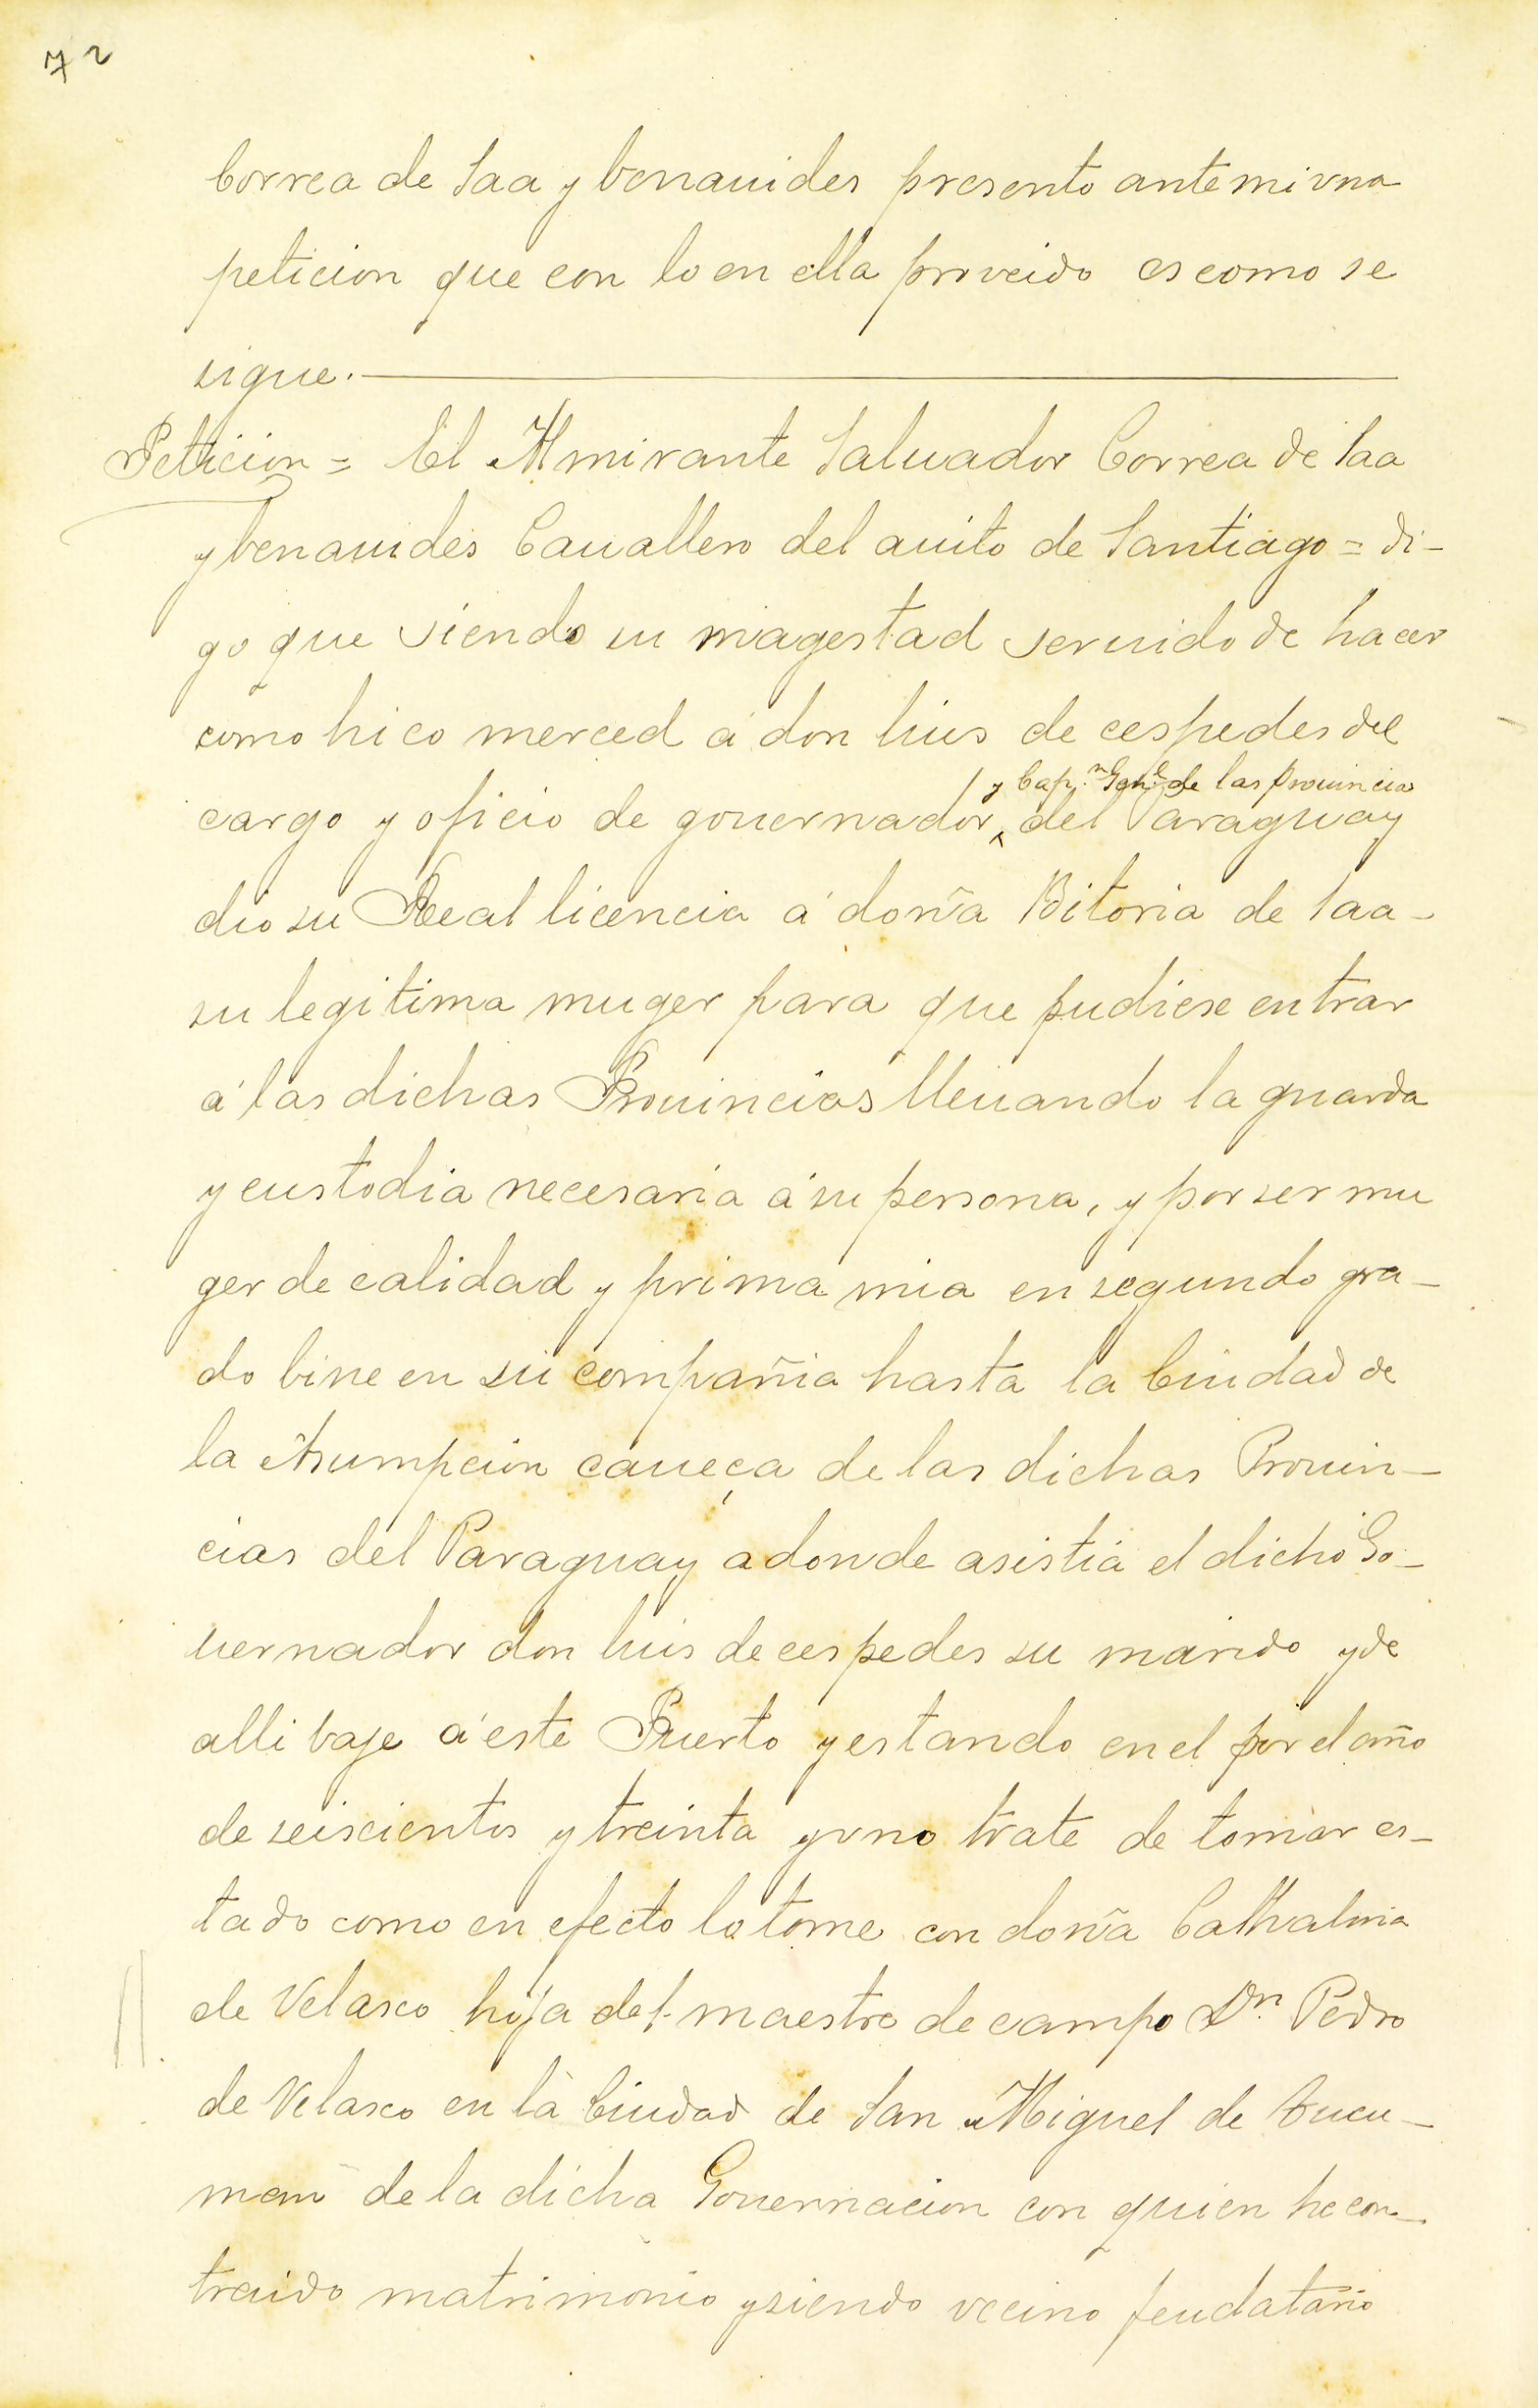 72
Correa de Saa y benauides presento ante mi vna
peticion que con lo en ella proveido es como se
sigue.
Peticion = El Almirante Saluador Correa de Saa
y benauides Cauallero del auito de Santiago = di-
go que siendo su magestad seruido de hacer
como hico merced á don luis de cespedes del
y Cap.n Gen.l de las prouincias
cargo y oficio de gouernador ^ del Paraguay
dio su Real licencia á doña Bitoria de Saa-
su legitima muger para que pudiese entrar
á las dichas Prouincias lleuando la guarda
y custodia necesaria á su persona, y por ser mu
ger de calidad y prima mia en segundo gra-
do bine en su compañia hasta la Ciudad de
la Asumpcion caueça de las dichas Prouin-
cias del Paraguay adonde asistia el dicho Go-
uernador don luis de cespedes su marido y de
alli baje á este Puerto y estando en el por el año
de seiscientos y treinta y vno trate de tomar es-
tado como en efecto lo tome con doña Cathalina
de Velasco hija del maestro de campo Dn. Pedro
de Velasco en la Ciudad de San Miguel de Tucu-
man de la dicha Gouernacion con quien he con-
traido matrimonio y siendo vecino feudatario